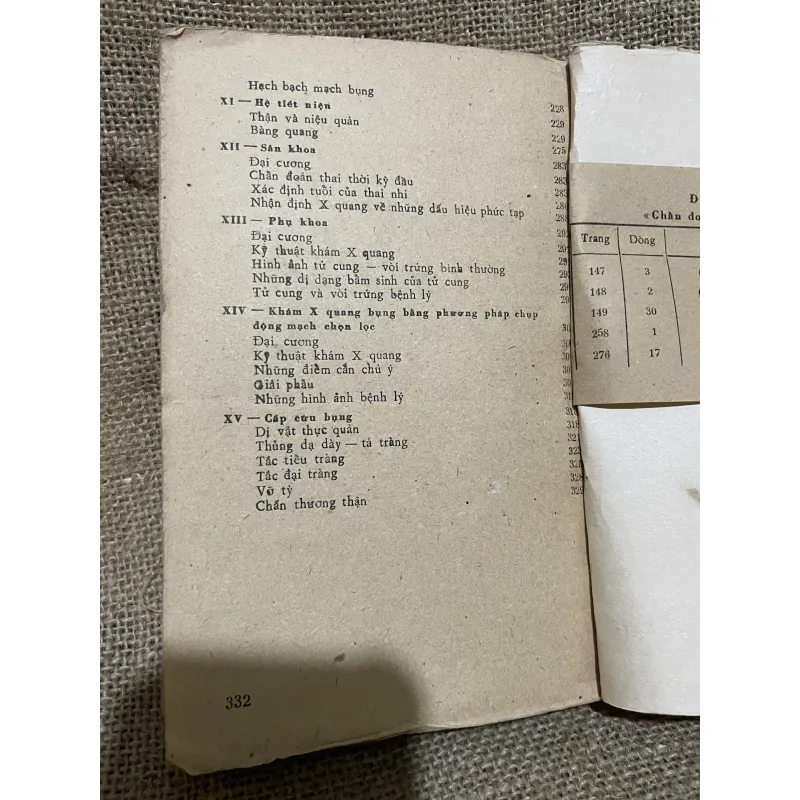 Hạch bạch mạch bụng
XI — Hệ tiết niệu 228
Thận và niệu quản 229
Bàng quang 229
XII — Sản khoa 275
Đại cương 283
Chẩn đoán thai thời kỳ đầu 283
Xác định tuổi của thai nhi 283
Nhận định X quang về những dấu hiệu phức tạp
XIII — Phụ khoa
Đại cương
Kỹ thuật khám X quang
Hình ảnh tử cung — vòi trứng bình thường
Những dị dạng bẩm sinh của tử cung
Tử cung và vòi trứng bệnh lý
XIV — Khám X quang bụng bằng phương pháp chụp
động mạch chọn lọc
Đại cương
Kỹ thuật khám X quang
Những điểm cần chú ý
Giải phẫu
Những hình ảnh bệnh lý
XV — Cấp cứu bụng
Dị vật thực quản 318
Thủng dạ dày — tá tràng 321
Tắc tiểu tràng 323
Tắc đại tràng
Vỡ tỳ 328
Chấn thương thận 329
332
Đ
«Chẩn do
Trang Dòng
147 3
148 2
149 30
258 1
276 17